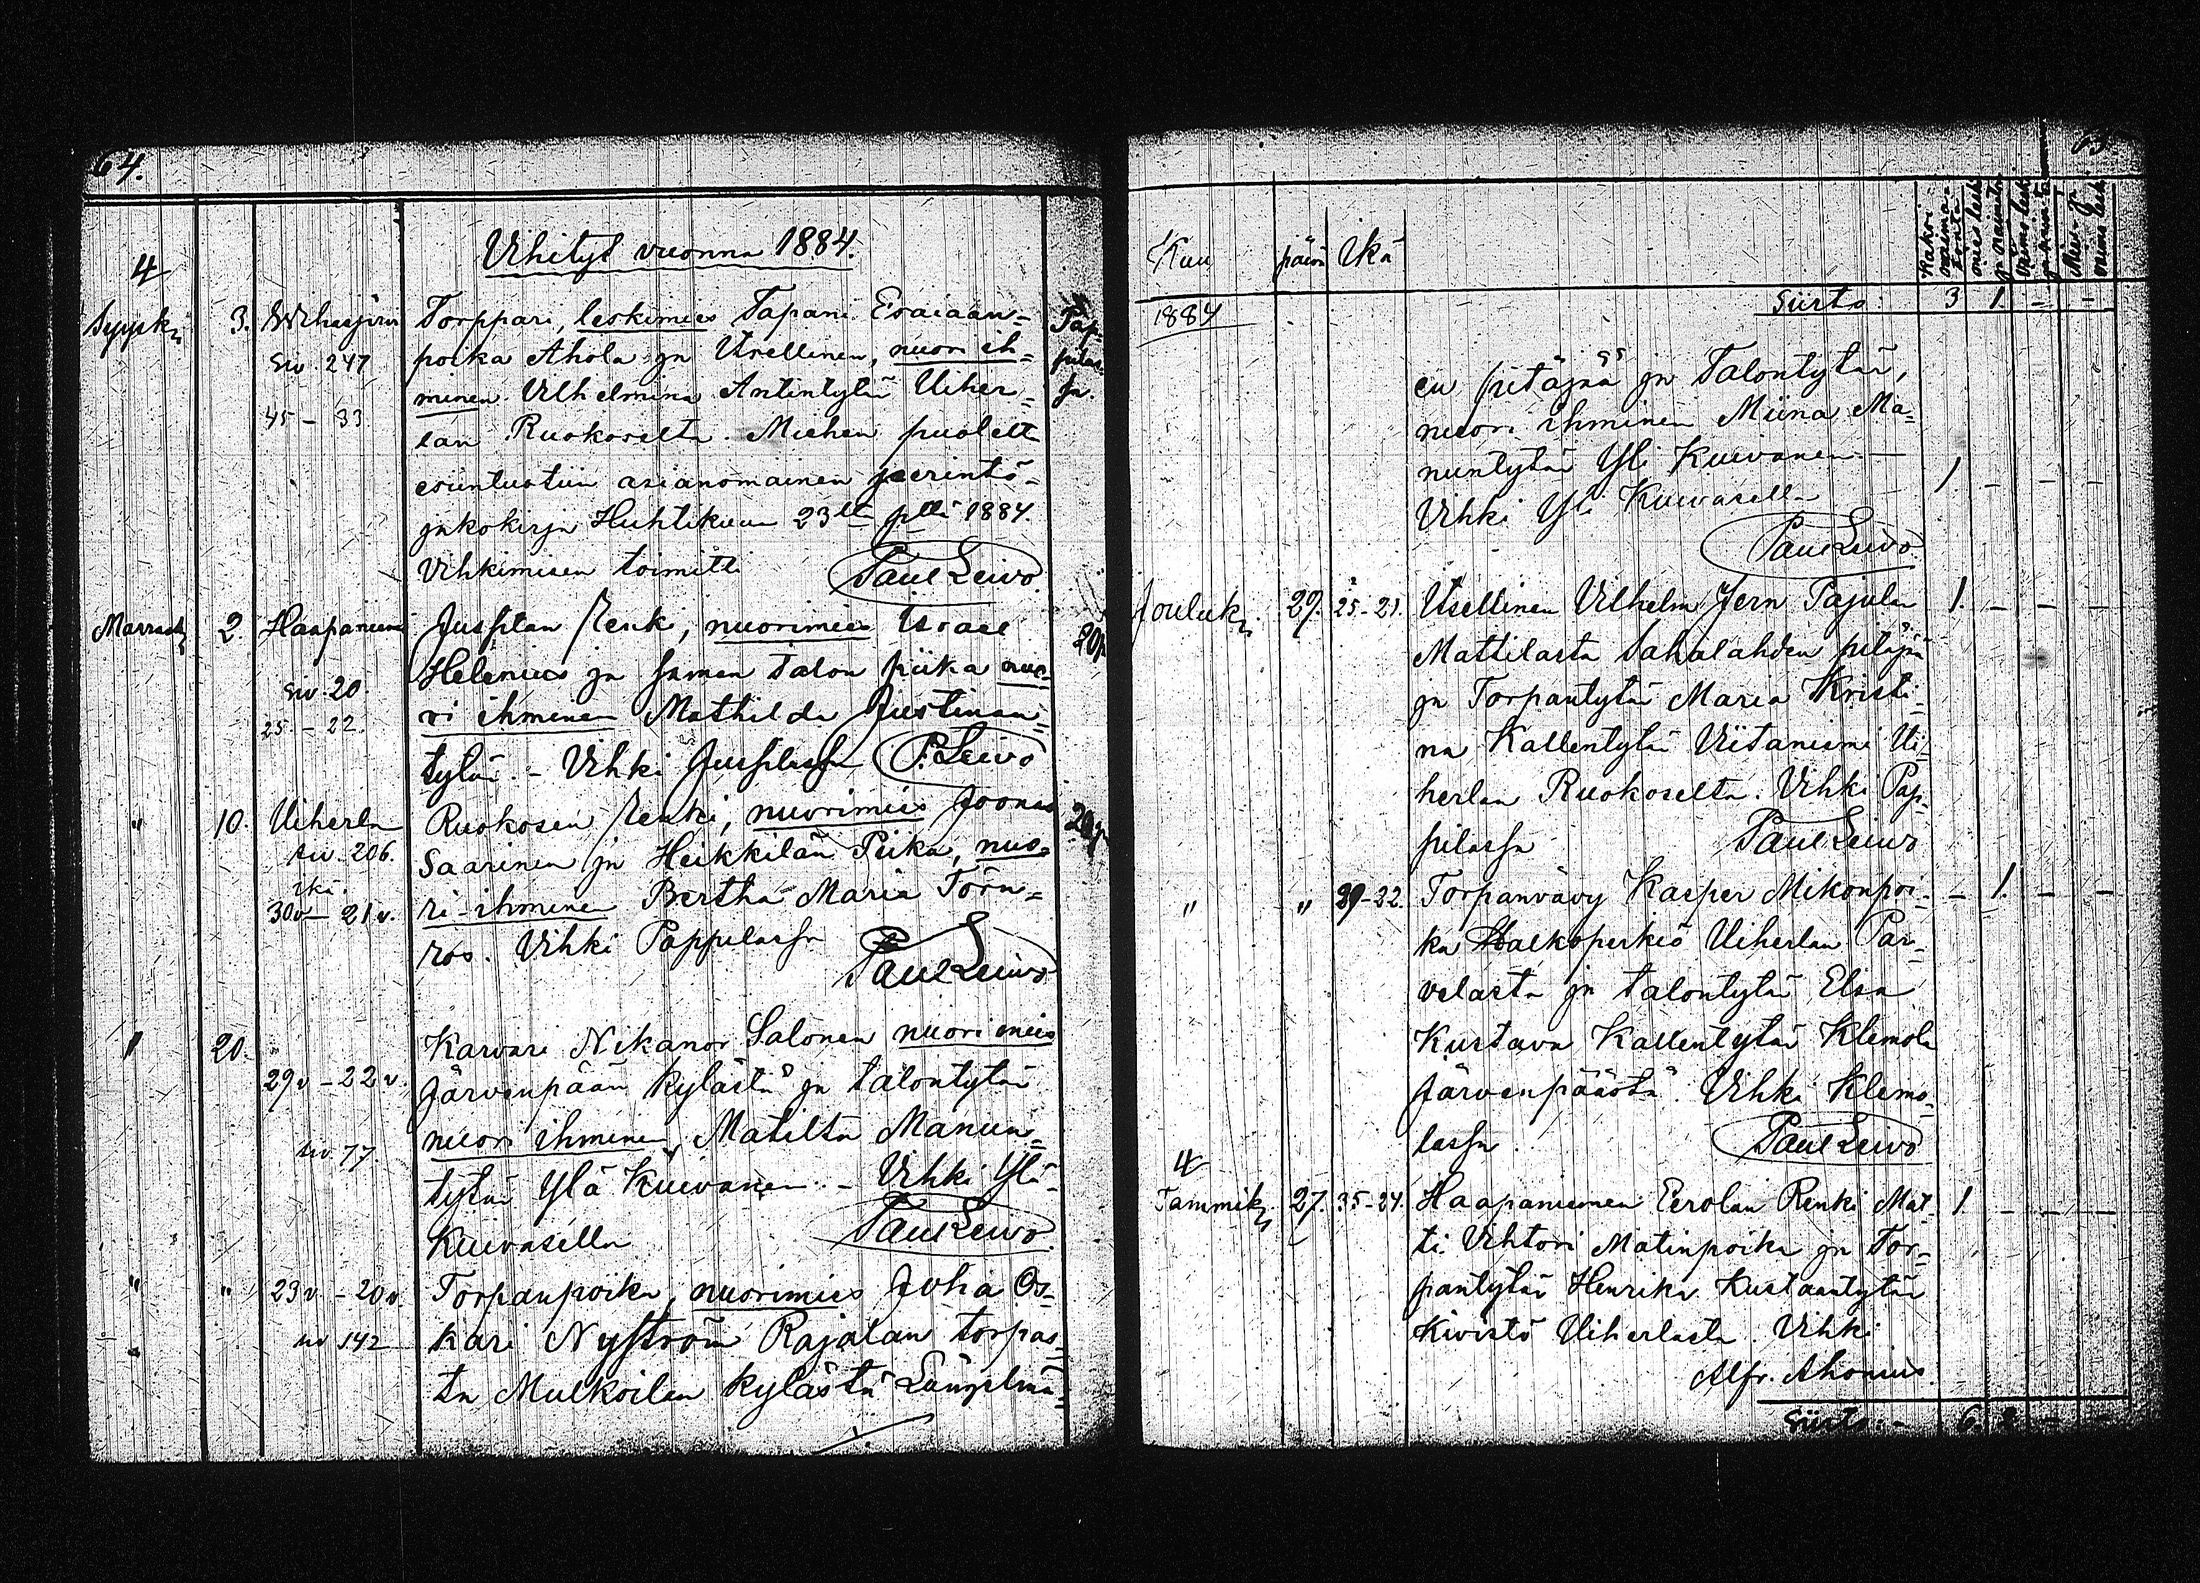 64.
Vihityt vuonna 1884.
4
Syysk. 3. Wihasjärvi Torppari, leskimies Tapani Esaiaan=
siv. 247 poika Ahola ja Itsellinen, nuori ih=
45 – 33 minen Vilhelmina Antintytär Uiher=
lan Ruokoselta. Miehen puolelta
esiintuotiin asianomainen perintö=
jakokirja Huhtikuun 23lta p:ltä 1884.
Vihkimisen toimitti Paul Leivo
Pap-
pilas-
sa.
Marrask. 2. Haapaniemi Jussilan Renki, nuorimies Israel
siv. 20. Helenius ja saman talon piika nuo=
25. – 22. ri ihminen Mathilda Justinan=
tytär. – Vihki Jussilassa P. Leivo
20p
" 10. Uiherla Ruokosen Renki, nuorimies Joonas
siv. 206. Saarinen ja Heikkilän Piika, nuo=
ikä.
30v – 21v. ri-ihminen Bertha Maria Törn=
ros. Vihki Pappilassa
Paul Leivo
20p
" 20. " Karvari Nikanor Salonen nuorimies
29v – 22v. Järvenpään kylästä ja talontytär
siv. 77. nuori ihminen, Matilta Manun=
tytär Ylä Kuivanen. – Vihki Ylä=
Kuivasella Paul Leivo.
" " 23v. – 20v. Torpanpoika, nuorimies Juha Os=
siv 142 kari Nyström Rajalan torpas=
ta Mulkoilan kylästä Längelmä=
65
Kuu päivä Ikä
1884
Siirto: 3 1. – –
en pitäjää ja Talontytär,
nuori ihminen Miina Ma=
nuntytär Yli Kuivanen – 1 – – –
Vihki Yli Kuivasella
Paul Leivo
Jouluk. 29. 25–21. Itsellinen Vilhelm Jern Pajulan 1. – – –
Mattilasta Sahalahden pitäjää
ja Torpantytär Maria Kristi=
na Kallentytär Viitaniemi Ui=
herlan Ruokoselta. Vihki Pap=
pilassa Paul Leivo
" " 29–22. Torpanvävy Kasper Mikonpoi= – 1. – –
ka Halkoperkiö Uiherlan Par=
velasta ja talontytär Elsa
Kustava Kallentytär Klemola
Järvenpäästä. Vihki Klemo=
lassa. Paul Leivo
4
Tammik. 27. 35–24. Haapaniemen Eerolan Renki Mat= 1. – – –
ti Vihtori Matinpoika ja Tor=
pantytär Henrika Kustaantytär
Kivistö Uiherlasta. Vihki
Alfr. Ahonius.
Siirto: – 6. 2 – –